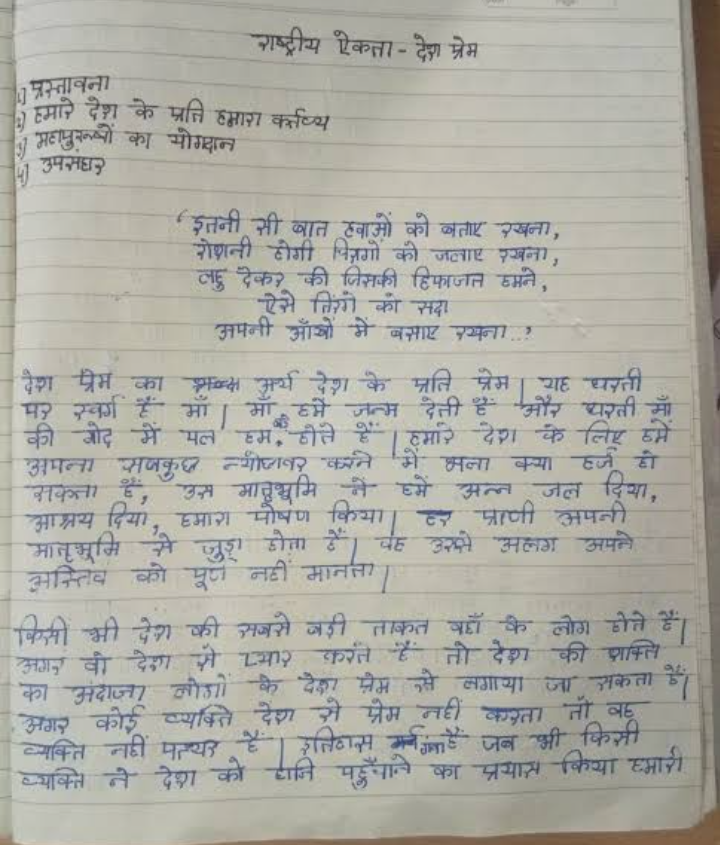 राष्ट्रीय ऐकता - देश प्रेम
1) प्रस्तावना
2) हमारे देश के प्रति हमारा कर्तव्य
3) महापुरूषों का योगदान
4) उपसंहार
‘इतनी सी बात हवाओं को बताए रखना,
रोशनी होगी चिरागों को जलाए रखना,
लहु देकर की जिसकी हिफाजत हमने,
ऐसे तिरंगे को सदा
अपनी आँखों में बसाए रखना..’
देश प्रेम का अर्थ देश के प्रति प्रेम। यह धरती
पर स्वर्ग हैं माँ। माँ हमें जन्म देती हैं और धरती माँ
की गोद में पल हम बड़े होते हैं। हमारे देश के लिए हमें
अपना सबकुछ न्योछावर करने में भला क्या हर्ज हो
सकता हैं, उस मातृभूमि ने हमें अन्न जल दिया,
आश्रय दिया, हमारा पोषण किया। हर प्राणी अपनी
मातृभूमि से जुड़ा होता हैं। वह उससे अलग अपने
अस्तिव को पूर्ण नहीं मानता।
किसी भी देश की सबसे बड़ी ताकत वहाँ के लोग होते हैं।
अगर वो देश से प्यार करते हैं तो देश की शक्ति
का अदाजा लोगों के देश प्रेम से लगाया जा सकता हैं।
अगर कोई व्यक्ति देश से प्रेम नहीं करता तो वह
व्यक्ति नहीं पत्थर हैं। इतिहास गवाह हैं जब भी किसी
व्यक्ति ने देश को हानि पहुँचाने का प्रयास किया हमारे